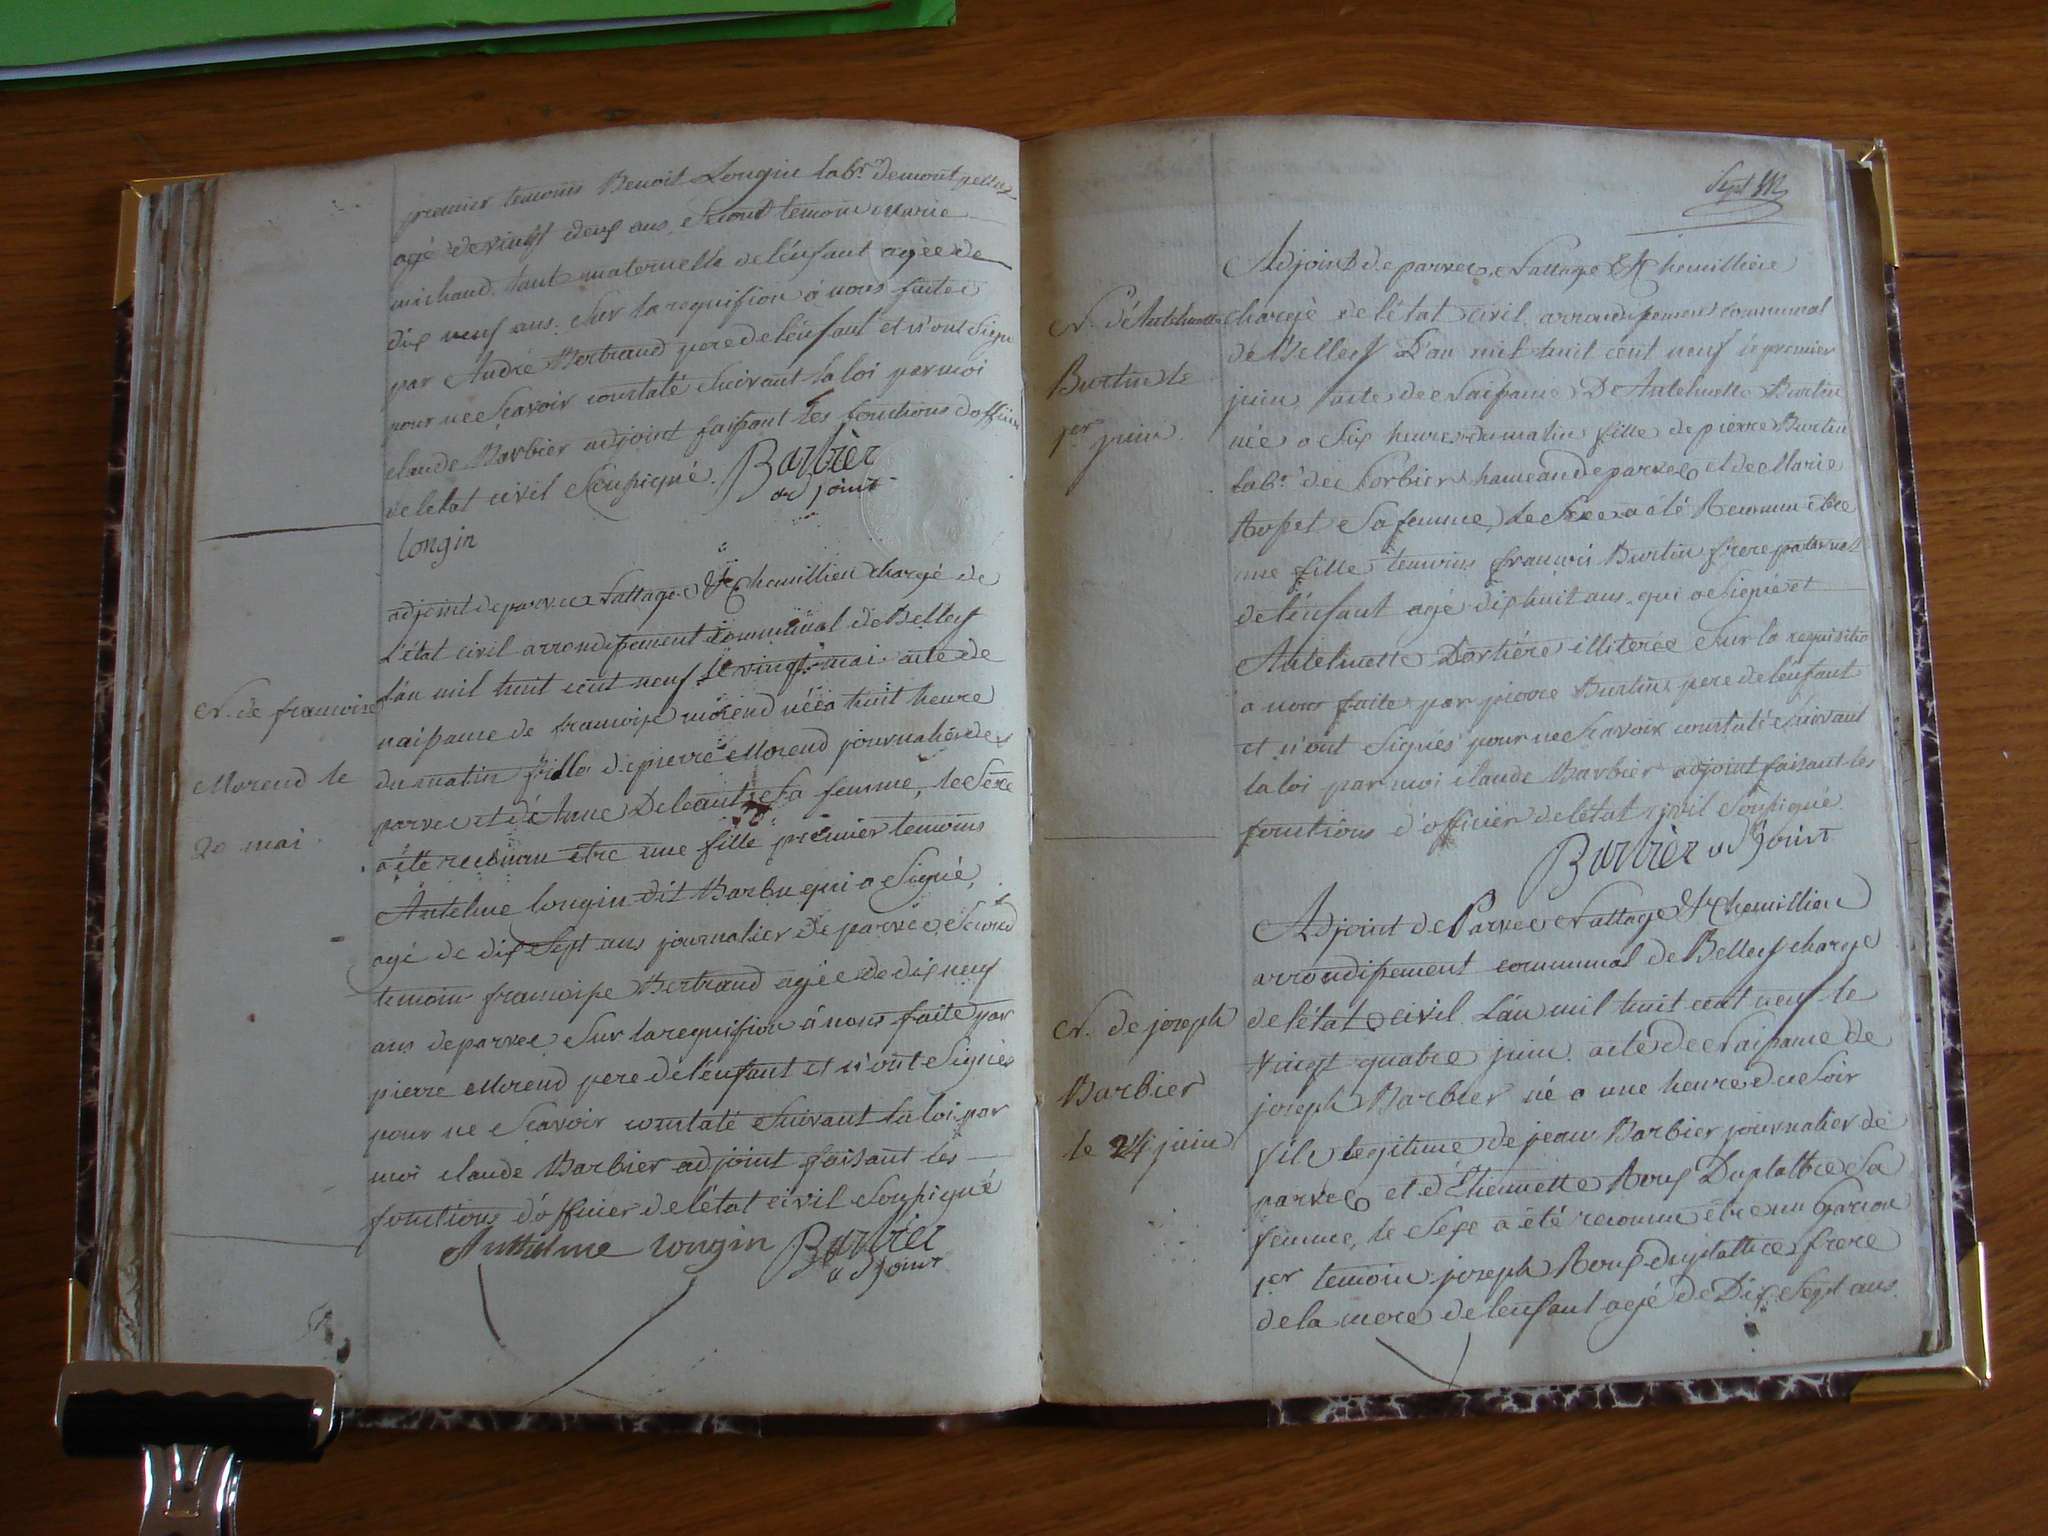 premier temoins Benoit Longin lab.r demont
agé de vingt deux ans, Second temoin Marie
michaud tante maternelle de lénfant agée de
dix neuf ans. Sur la requisition á nous faite
par André Bertrand pere de lénfant et n'ont Signé
pour ne Scavoir constaté Suivant la loi par moi
claude Barbier adjoint faisant les fonctions d officier
de letat civil Soussigné. Barbièr
adjoint
longin
adjoint de parvee Nattage & Chemillieu chargé de
L'état civil arrondissement communal de Belley
L'an mil huit cent neuf le vingt mai acte de
N. de francoise
naissance de francoise morend née a huit heure
Morend le
du matin fille de pierre Morend journalier de
parvee et dé Anne Deleant Sa femme, le Sexe
20 mai
a été reconnu être une fille premier temoins
Antelme longin dit Barbu qui a Signé,
agé de dix Sept ans journalier de parvee, Second
temoin francoise Bertrand agée de dix neuf
ans de parvee Sur la requisition á nous faite par
pierre Morend pere de lénfant et n'ont Signés
pour ne Scavoir constaté Suivant la loi par
moi claude Barbier adjoint faisant les
fonctions d'officier de létat civil Soussigné
Anthelme longin Barbier
adjoint
Sept
Adjoint de parvee Nattage & Chemillieu
N. d'Antelmette
chargé de létat civil arrondissement communal
de Belley L'an mil huit cent neuf le premier
Burtin le
juin acte de Naissance D'Antelmette Burtin
1er juin
née a Six heures du matin fille de pierre Burtin
lab.r de Sorbier hameau de parvee et de Marie
Rosset Sa femme, le Sexe a été Reconnu être
une fille temoins francois Burtin frere paternel
de lénfant agé dix huit ans, qui a Signé et
Antelmette Dortiére illiterée Sur la requisitio
a nous faite par pierre Burtin pere de lénfant
et n'ont Signés pour ne Scavoir constaté Suivant
la loi par moi claude Barbier adjoint faisant les
fonctions d'officier de létat civil Soussigné
Barbièr adjoint
Adjoint de Parvee Nattage & Chemillieu
arrondissement communal de Belley chargé
N. de joseph
de létat civil. L'an mil huit cent neuf le
vingt quatre juin acte de Naissance de
Barbier
joseph Barbier né a une heure du Soir
le 24 juin
fils legitime de jean Barbier journalier de
parvee et d'Etiennette Roux Duplattre Sa
femme, le Sexe a été reconnu être un Garcon
1er temoin joseph Roux duplattre frere
de la mere de lenfant agé de Dix Sept ans.